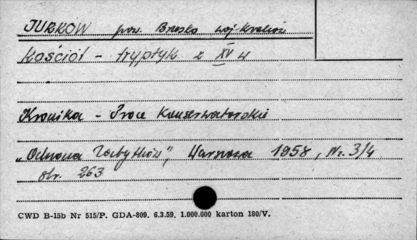 JURKÓW pow. Brzesko woj. Kraków
Kościół - tryptyk z XV w
Kronika - Prace Konserwatorskie
"Ochrona Zabytków", Warszawa 1958, Nr. 3/4
str. 263
CWD B-15b Nr 515/P. GDA-809. 6.3.59. 1.000.000 karton 180/V.